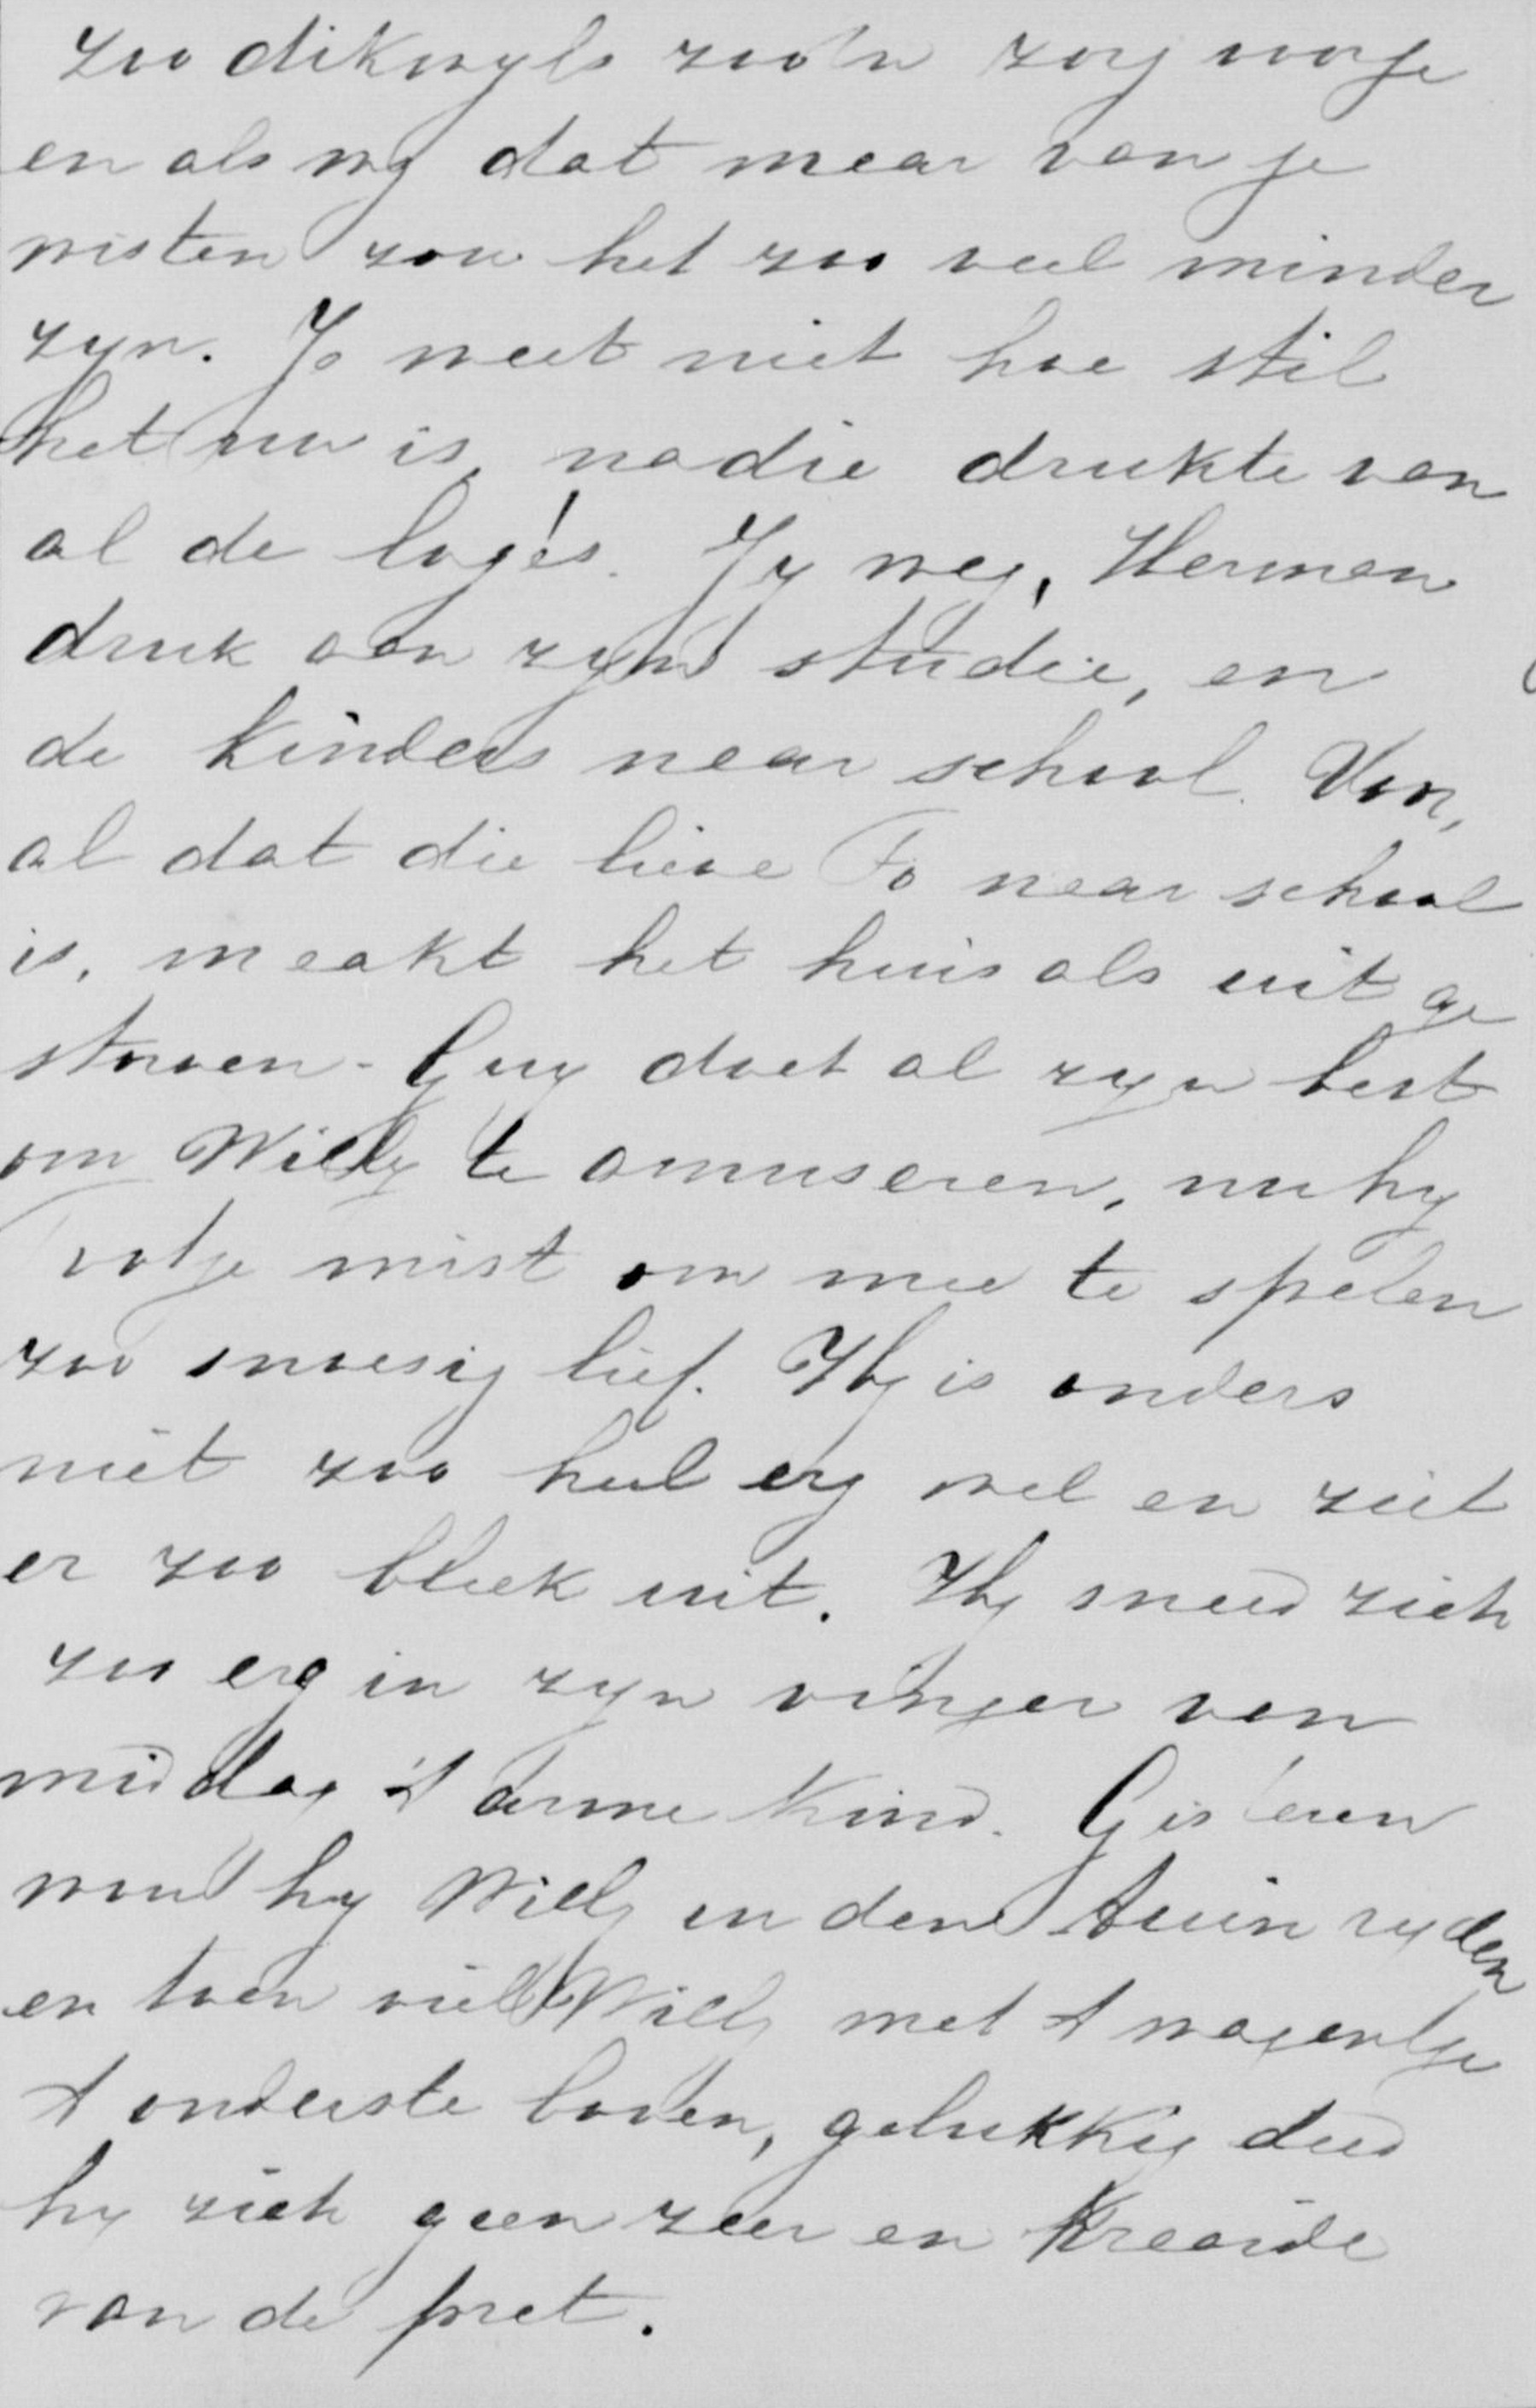 zoo dikwyls zoo'n zorg voor je
en als wy dat maar van je
wisten zou het zoo veel minder
zyn. Je weet niet hoe stil
het nu is, na die drukte van
al de logés! Jy weg, Herman
druk aan zyn studie, en
de kinders naar school. Voor,
al dat die lieve To naar school
is, maakt het huis als uit ge
storven - Guy doet al zyn best
om Willy te amuseren, nu hy
Tootje mist om mee te spelen
zoo snoesig lief. Hy is anders
niet zoo heel erg wel en ziet
er zoo bleek uit. Hy sneed zich
zoo erg in zyn vinger van
middag 't arme kind. Gisteren
wou hy Willy in den tuin ryden
en toen viel Willy met 't wagentje
't onderste boven, gelukkig deed
hy zich geen zeer en kraaide
van de pret.